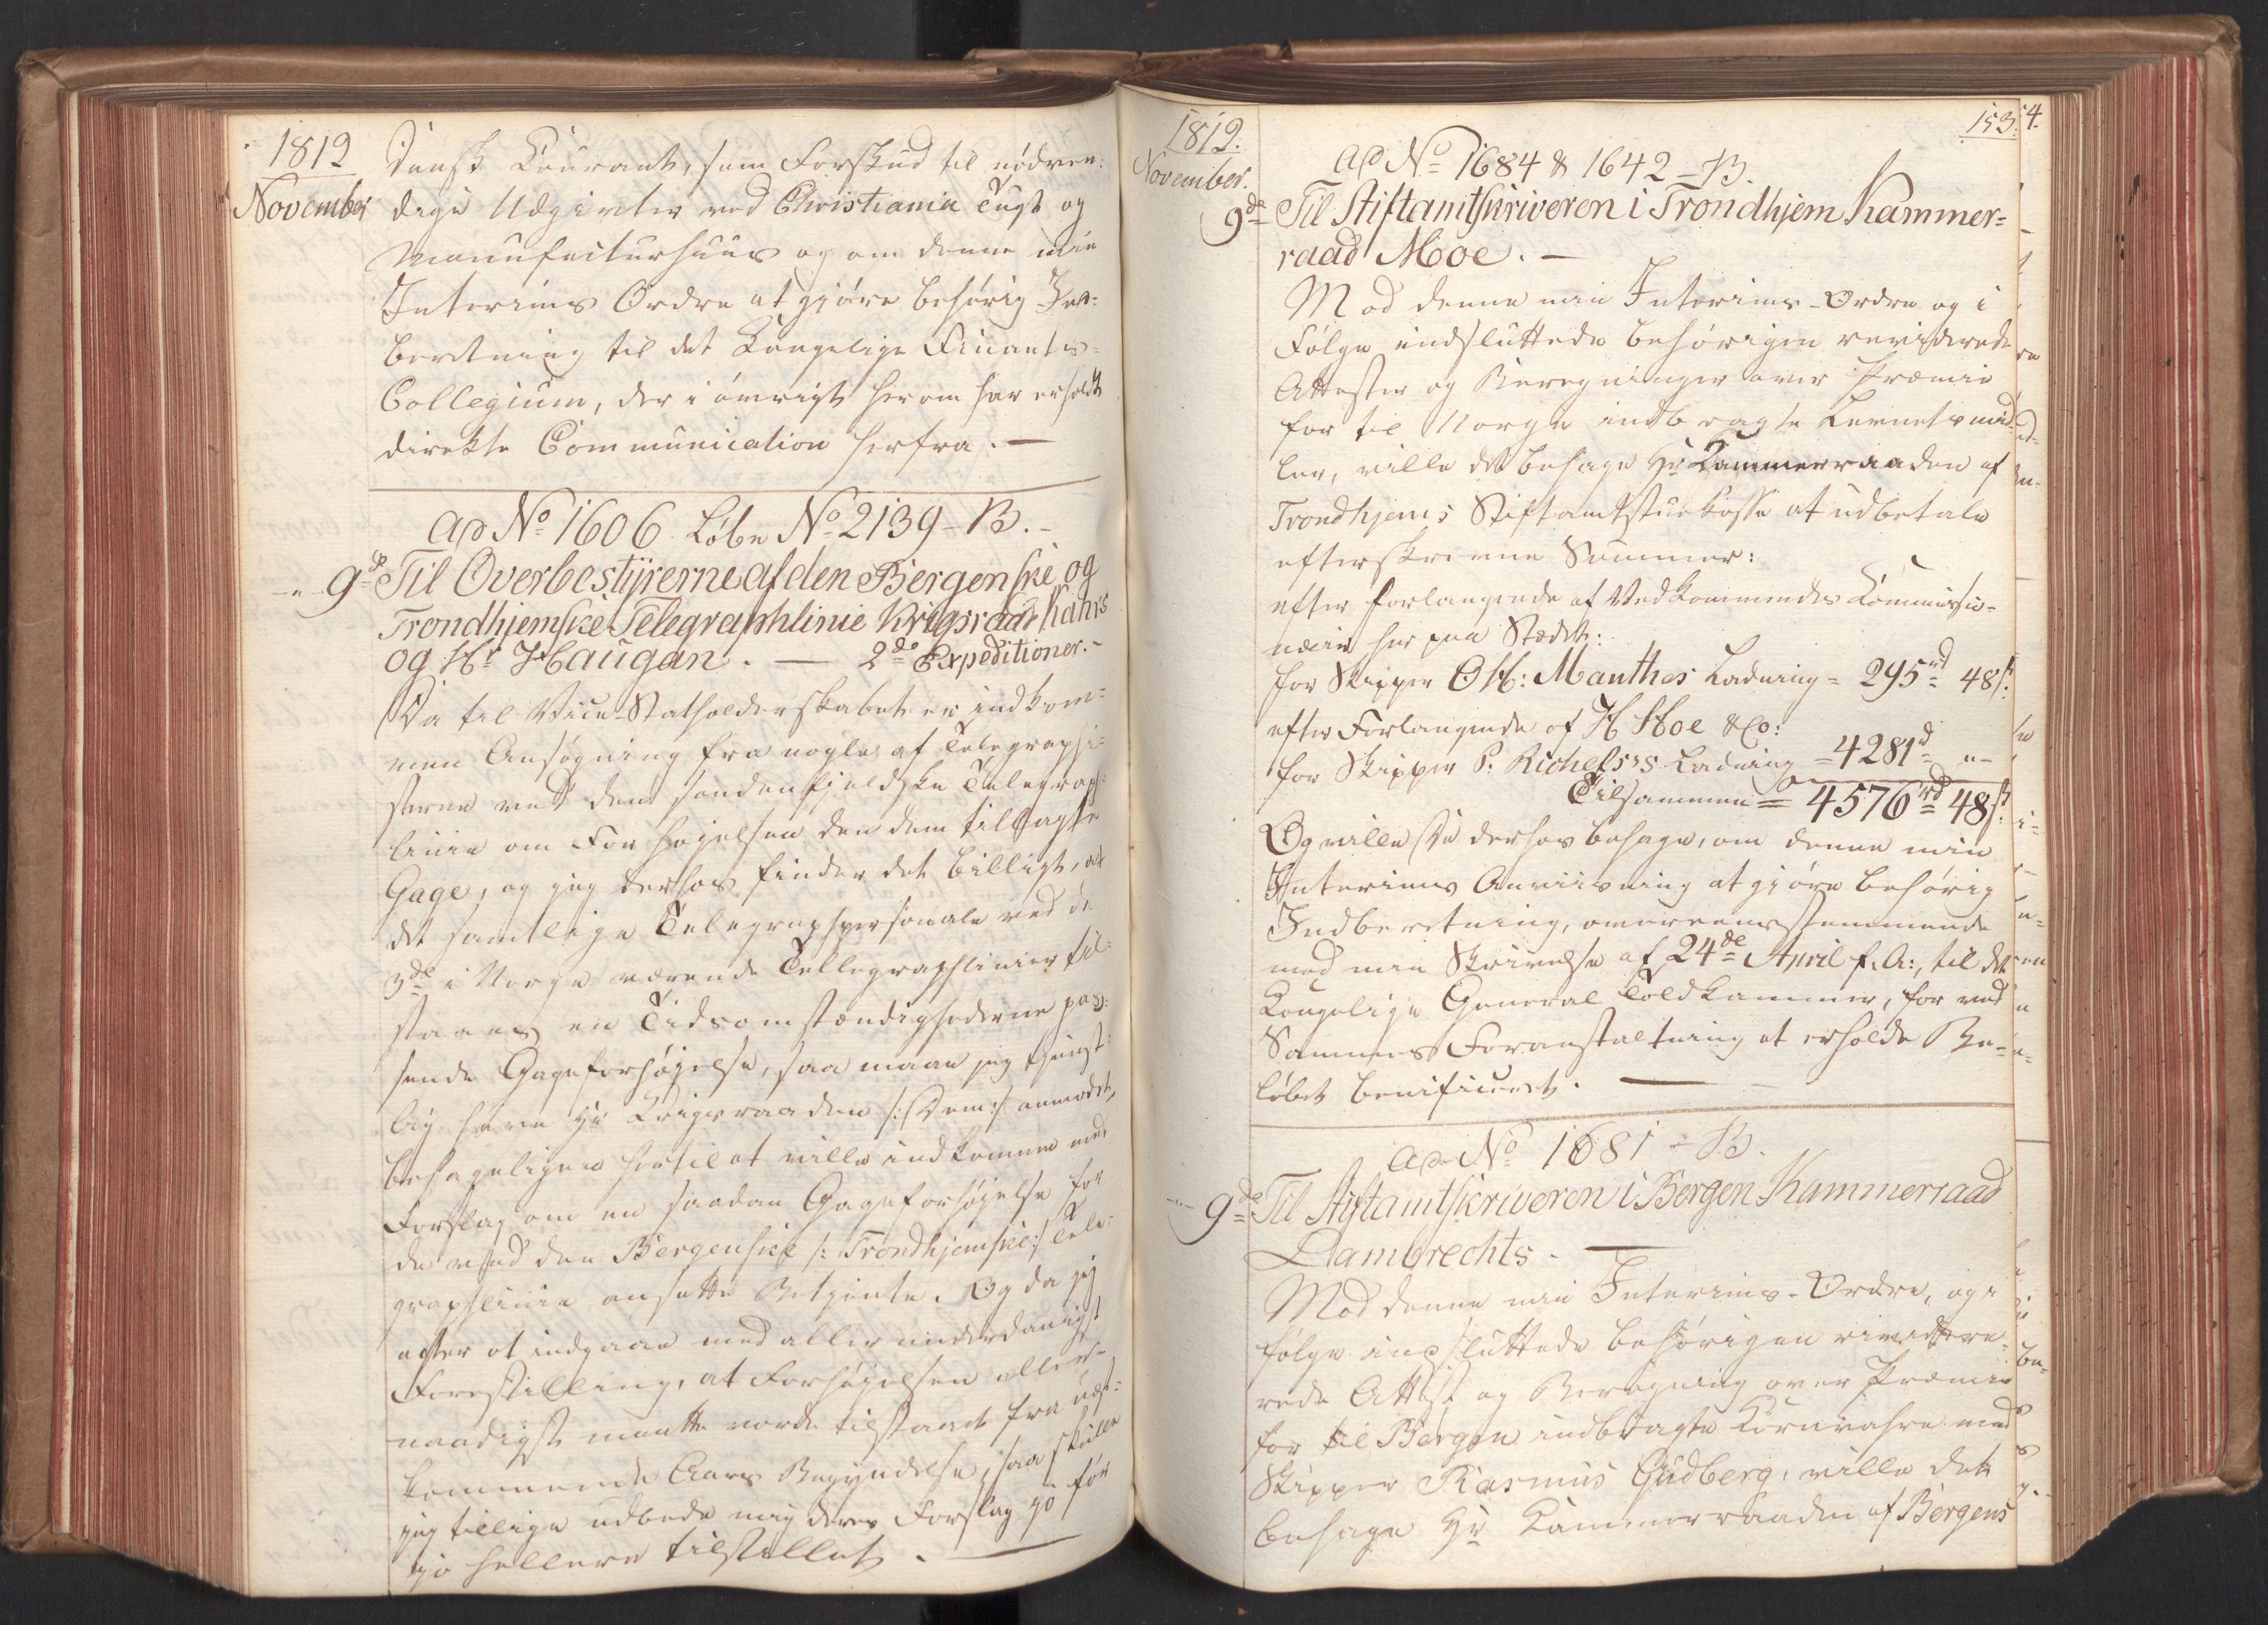 1812
November
Dansk Courant, som Forskud til nödven:
dige Udgivter ved Christiania Tugt og
Manufacturhuus og om denne min
Interims Ordre at gjöre behörig Ind-
beretning til det Kongelige Finants-
Collegium, der i övrigt herom har erholdt
direkte Communication herfra. —
ad No 1606 Löbe No 2139 - B. -
- " - 9de Til Overbestyrerne af den Bergenske og
Trondhjemske Telegraphlinie Krigsraad Kahrs
og Hr Haugan. — 2de Expeditioner. -
Da til Vice-Statholderskabet er indkom-
men Ansögning fra nogle af Telegraphi-
sterne ved den søndenfjeldske Telegraph-
linie om Forhøjelsen den dem tillagte
Gage, og jeg derhos finder det billigt, at
det samtlige Telegraphpersonale ved de
3de i Norge værende Tellegraphlinier til-
staaes en Tidsomstændighederne pas-
sende Gageforhøjelse, saa maae jeg tjenst-
lig have Hr Krigsraaden /: Dem :/ anmodet,
behageligen hertil at ville indkomme med
Forslag om en saadan Gageforhøjelse for
de ved den Bergenske /: Trondhjemske :/ Tele-
graphlinie ansatte Betjente. Og da jeg
agter at indgaae med allerunderdanigst
Forestilling, at Forhøjelsen aller-
naadigst maatte vorde tilstaaet fra næst-
kommende Aars Begyndelse, saa skulle
jeg tillige udbede mig deres Forslag jo för
jo hellere tilstillet. —
1812.
November.
153.
4.
ad No 1684 & 1642 - B.
9de Til Stiftamtskriveren i Trondhjem Kammer-
raad Moe. —
Mod denne min Interims-Ordre og i
Fölge indsluttede behörigen reviderede
Attester og Beregninger over Præmie
for til Norge indbragte Levnetsmid-
ler, ville det behage Hr Kammerraaden af
Trondhjems Stiftamtstuekasse at udbetale
efterskrevne Summer:
efter Forlangende af Vedkommendes Commissio-
nair her paa Stedet:
for Skipper O H: Manthes Ladning = 295rd 48 s.
efter Forlangende af H Hoe & Co:
for Skipper P: Richelsens Ladning = 4281rd " -
Tilsammen = 4576rd 48 s.
Og ville De derhos behage, om denne min
Interims Anviisning at gjöre behörig
Indberetning, overeensstemmende
med min Skrivelse af 24de April f. A:, til det
Kongelige General Toldkammer, for ved
Sammes Foranstaltning at erholde Be-
löbet benificeret. —
ad No 1681 - B.
- " - 9de Til Stiftamtskriveren i Bergen Kammerraad
Lambrechts. —
Mod denne min Interims-Ordre, og i
fölge indsluttede behörigen revidere-
rede Attest og Beregning over Præmie
for til Bergen indbragte Kornvahre med
Skipper Rasmus Gudberg, ville det
behage Hr Kammerraaden af Bergens